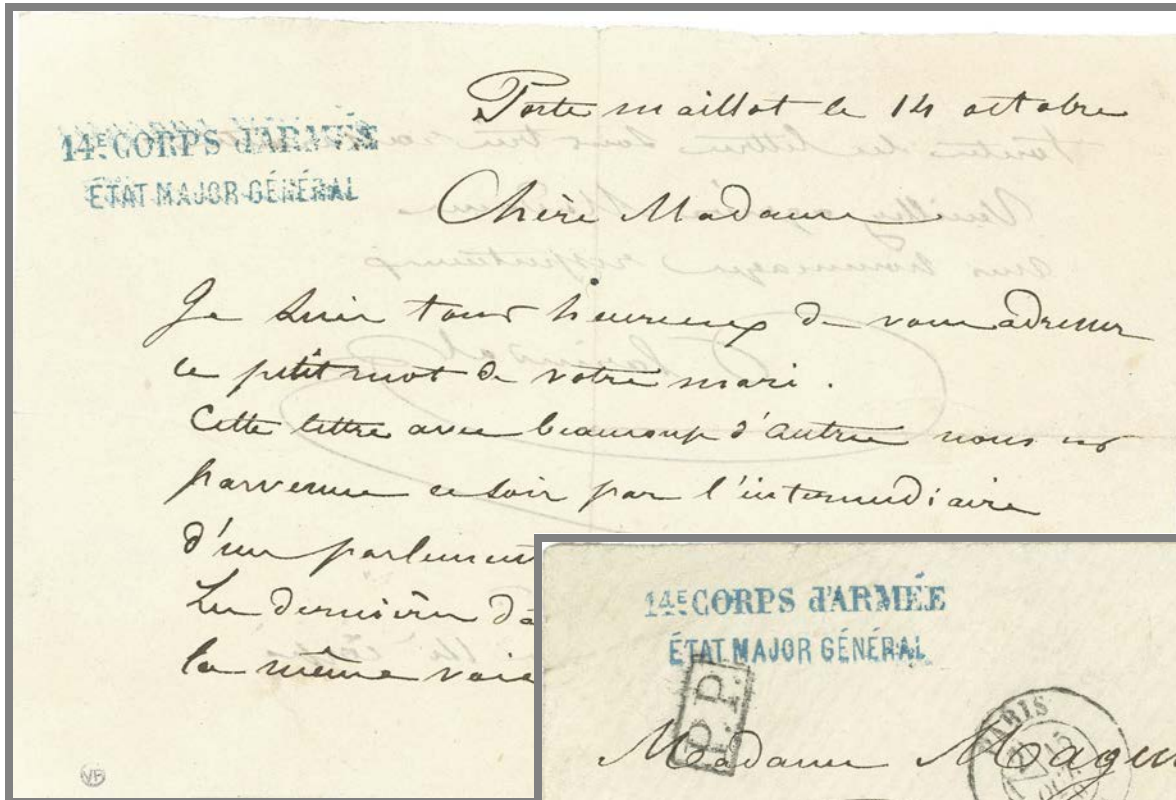 Porte maillot le 14 octobre
14E CORPS d'ARMÉE
ÉTAT MAJOR GÉNÉRAL
Chère Madame
Je suis tout heureux de vous adresser
ce petit mot de votre mari.
Cette lettre avec beaucoup d'autres nous est
parvenue ce soir par l'intermediaire
d'un parlement
Les dernières
la même voie
VB
14E CORPS d'ARMÉE
ÉTAT MAJOR GÉNÉRAL
P.P.
PARIS
15
OCT
Madame Magn